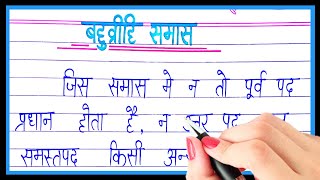 बहुव्रीहि समास
जिस समास मे न तो पूर्व पद
प्रधान होता है, न उत्तर पद
समस्तपद किसी